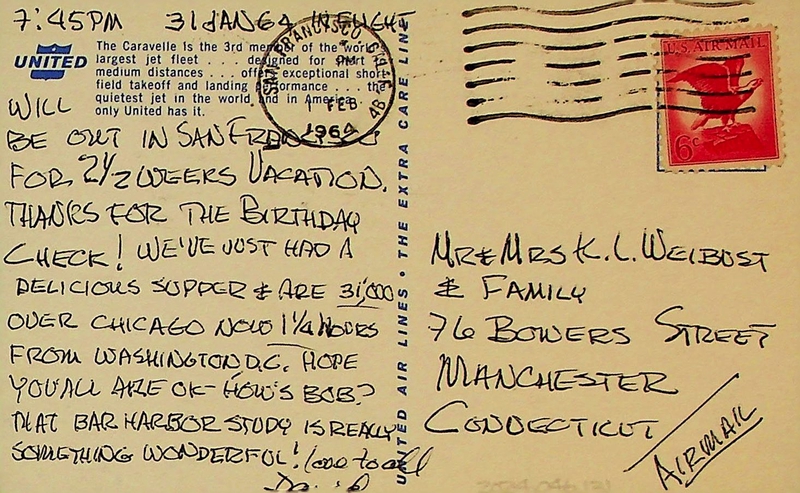 7:45PM 31 JAN 64 IN FLIGHT
UNITED
The Caravelle is the 3rd member of the world's
largest jet fleet . . . designed for short to
medium distances . . . offers exceptional short
field takeoff and landing performance . . . the
quietest jet in the world and in America
only United has it.
WILL
BE OUT IN SAN FRANCISCO
FOR 2½ WEEKS VACATION.
THANKS FOR THE BIRTHDAY
CHECK! WE'VE JUST HAD A
DELICIOUS SUPPER & ARE 31,000
OVER CHICAGO NOW 1¼ HOURS
FROM WASHINGTON D.C. HOPE
YOU ALL ARE OK- HOW'S BOB?
THAT BAR HARBOR STUDY IS REALLY
SOMETHING WONDERFUL! love to all
UNITED AIR LINES • THE EXTRA CARE LINE
SAN FRANCISCO CALIF
PM
1 FEB
1964
U.S. AIR MAIL
6¢
MR & MRS K. L. WEIBUST
& FAMILY
76 BOWERS STREET
MANCHESTER
CONNECTICUT
AIRMAIL